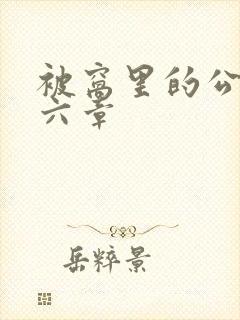 被窝里的公
六章
岳粹景